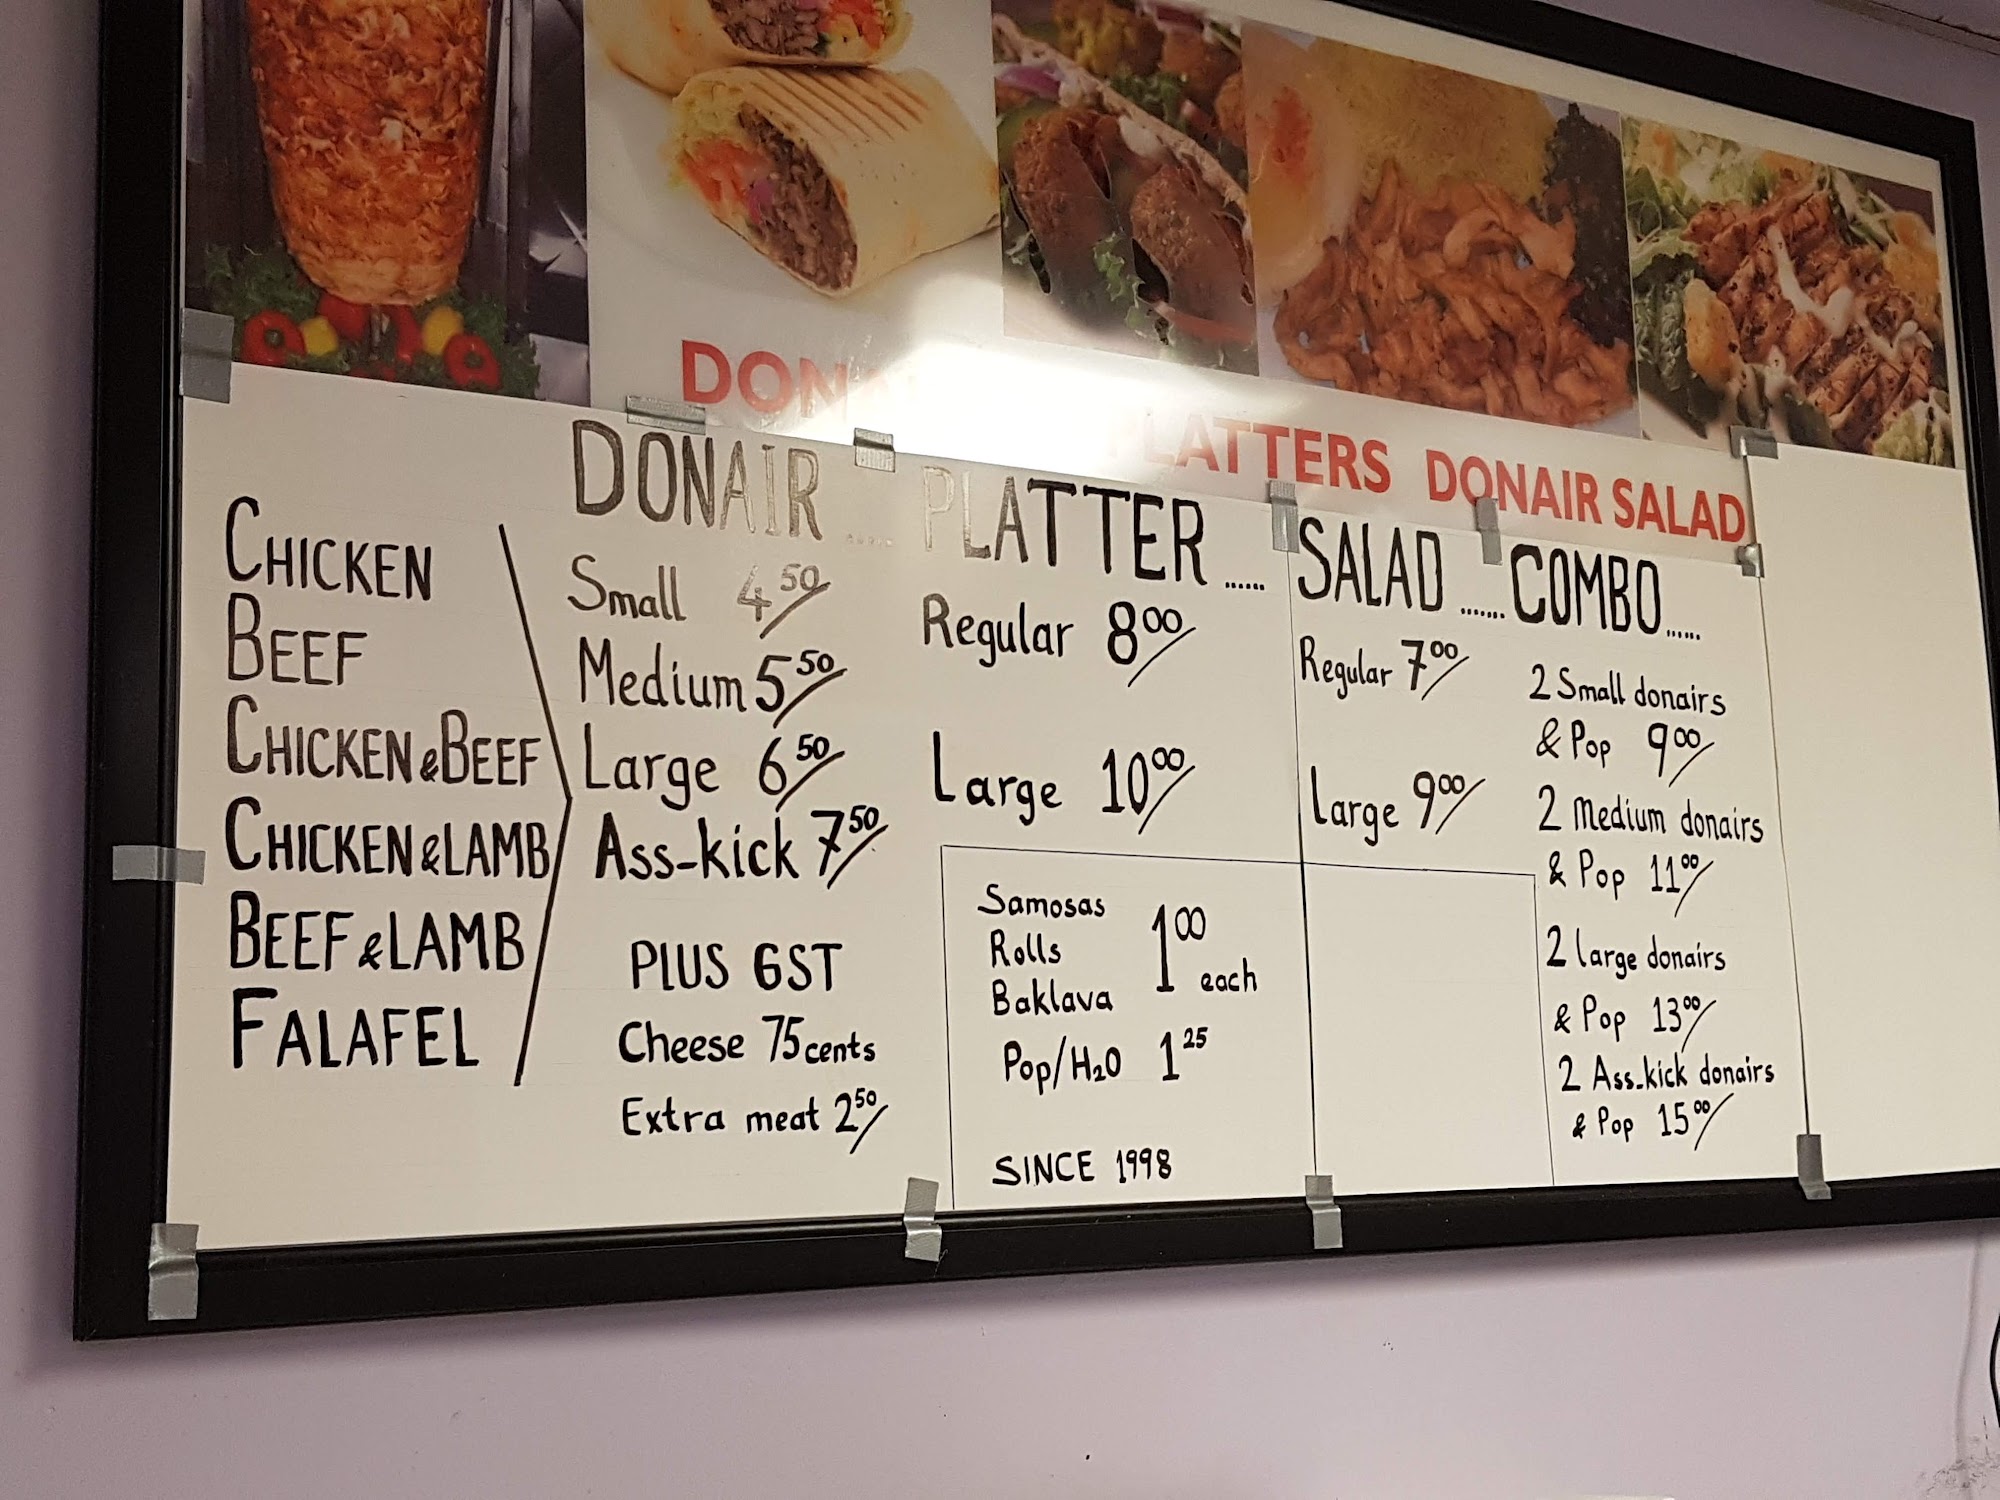 DON
PLATTERS DONAIR SALAD
CHICKEN
BEEF
CHICKEN & BEEF
CHICKEN & LAMB
BEEF & LAMB
FALAFEL
DONAIR ......
Small 4 50
Medium 5 50
Large 6 50
Ass-kick 7 50
PLUS GST
Cheese 75 cents
Extra meat 2 50
PLATTER ......
Regular 8 00
Large 10 00
Samosas
Rolls
Baklava
1 00 each
Pop/H2O 1 25
SINCE 1998
SALAD .......
Regular 7 00
Large 9 00
COMBO ......
2 Small donairs
& Pop 9 00
2 Medium donairs
& Pop 11 00
2 large donairs
& Pop 13 00
2 Ass-kick donairs
& Pop 15 00